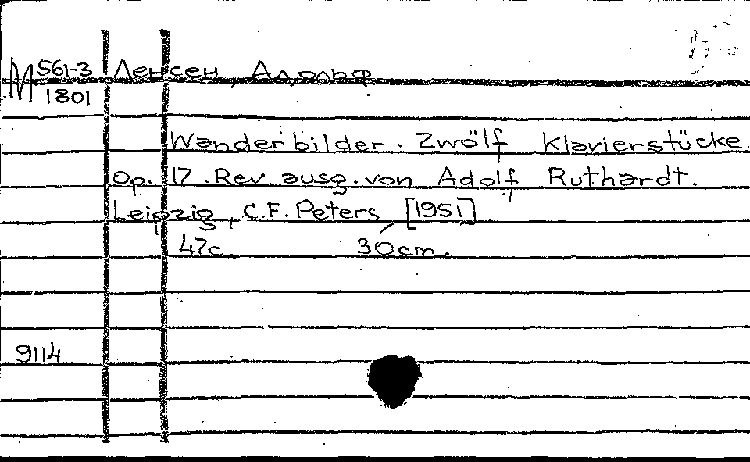 М 561-3 Ленсен, Адольф
1801
Wanderbilder. Zwölf Klavierstücke.
Op. 17. Rev. ausg. von Adolf Ruthardt.
Leipzig, C.F. Peters [1951]
47c. 30cm.
9114